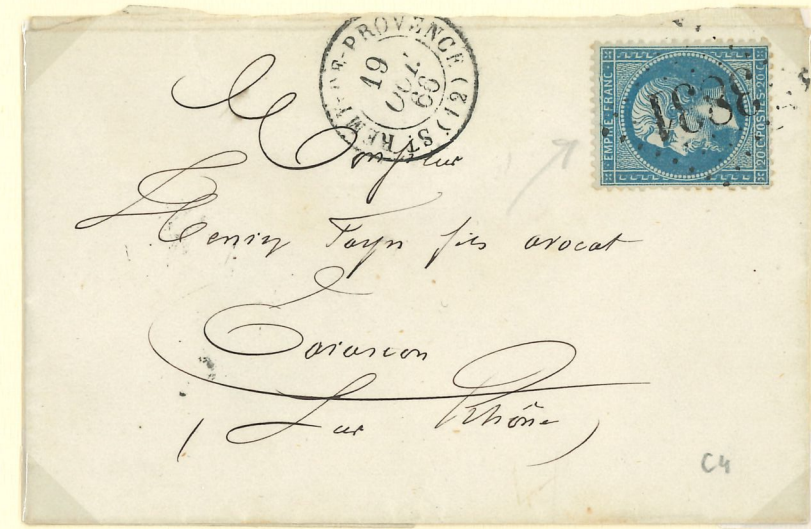 ST REMY-DE-PROVENCE (12)
19
OCT.
EMPIRE FRANC.
20 C POSTES 20 C
3831
Monsieur
Henry Fayn fils avocat
à
Tarascon
(Sur Rhône)
C4